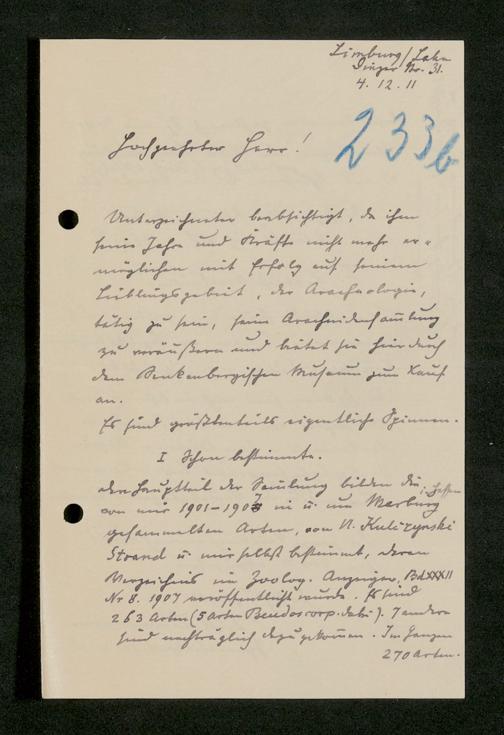 Limburg/Lahn
Diezer Str. 31.
4. 12. 11
233b
Hochgeehrter Herr!
Unterzeichneter beabsichtigt, da ihm
seine Jahre und Kräfte nicht mehr er-
möglichen mit Erfolg auf seinem
Lieblingsgebiet, der Arachnologie,
tätig zu sein, seine Arachnidensam̄lung
zu veräußern und bietet sie hierdurch
dem Senkenbergischen Museum zum Kauf
an.
Es sind größtenteils eigentliche Spinnen.
I Schon bestimmte.
Den Hauptteil der Sam̄lung bilden die, Hessen
von mir 1901-1907 in u. um Marburg
gesammelten Arten, von Kulczynski
Strand u. mir selbst bestimmt, deren
Verzeichnis im Zoolog. Anzeiger, Bd XXXII
Nr 8. 1907 veröffentlicht wurde. Es sind
263 Arten (5 Arten Pseudoscorp. dabei). 7 andere
sind nachträglich dazugekom̄en. Im Ganzen
270 Arten.